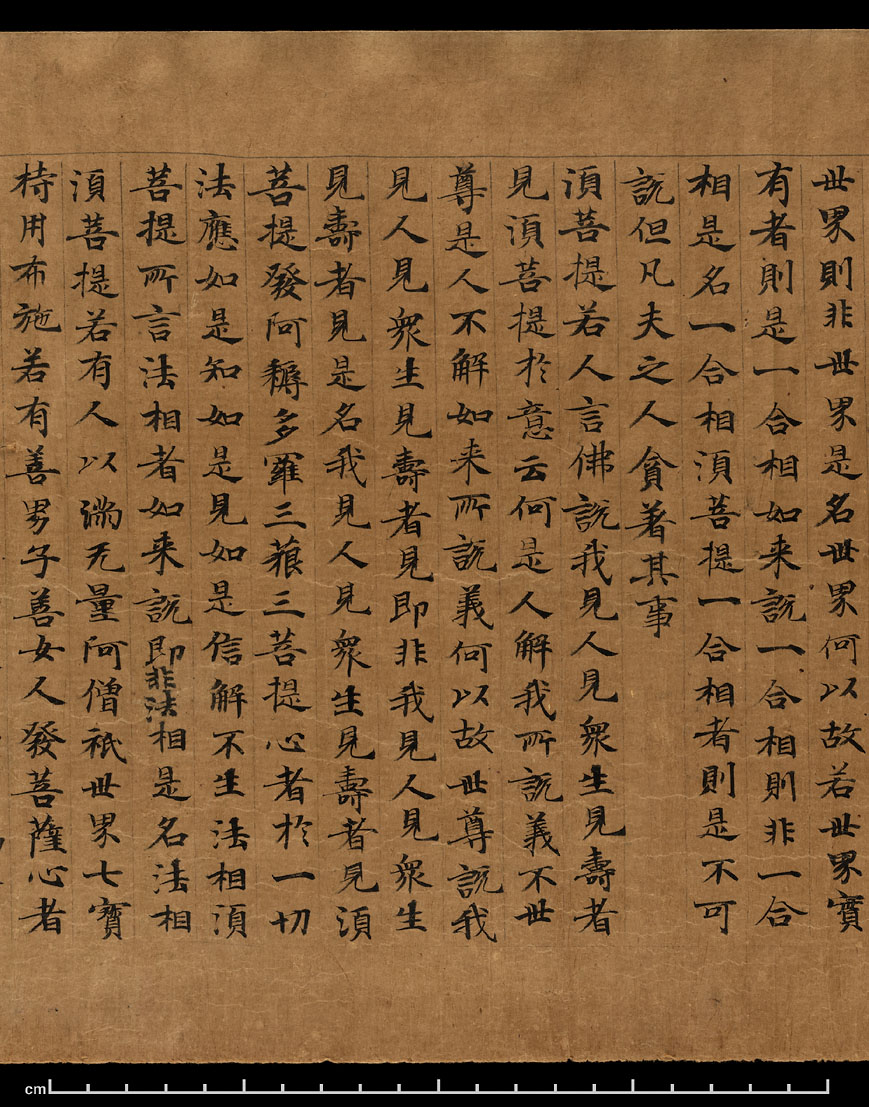 世界則非世界是名世界何以故若世界實
有者則是一合相如来説一合相則非一合
相是名一合相湏菩提一合相者則是不可
説但凡夫之人貪著其事
湏菩提若人言佛説我見人見衆生見壽者
見湏菩提於意云何是人解我所説義不世
尊是人不解如来所説義何以故世尊説我
見人見衆生見壽者見即非我見人見衆生
見壽者見是名我見人見衆生見壽者見湏
菩提發阿耨多羅三藐三菩提心者於一切
法應如是知如是見如是信解不生法相湏
菩提所言法相者如来説即非法相是名法相
湏菩提若有人以滿无量阿僧祇世界七寶
持用布施若有善男子善女人發菩薩心者
cm